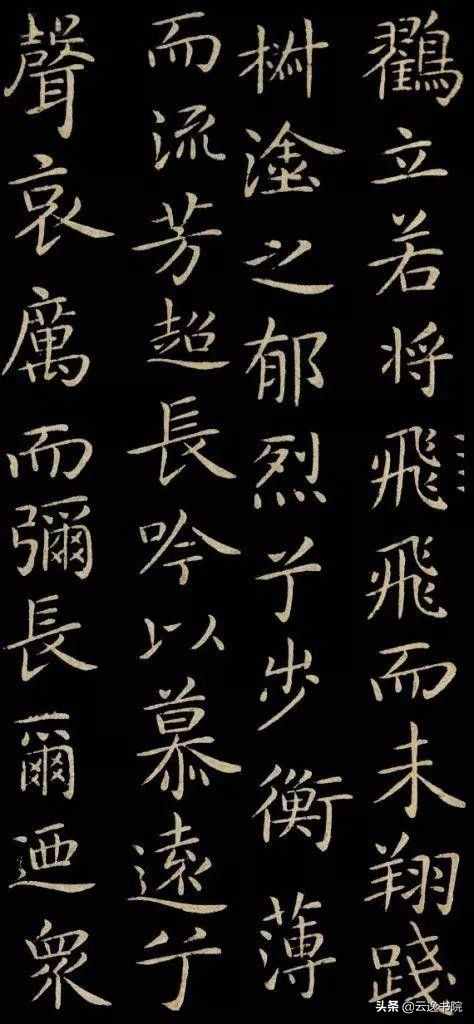 鶴立若将飛飛而未翔踐
椒塗之郁烈兮步衡薄
而流芳超長吟以慕遠兮
聲哀厲而彌長爾迺眾
头条 @云逸书院